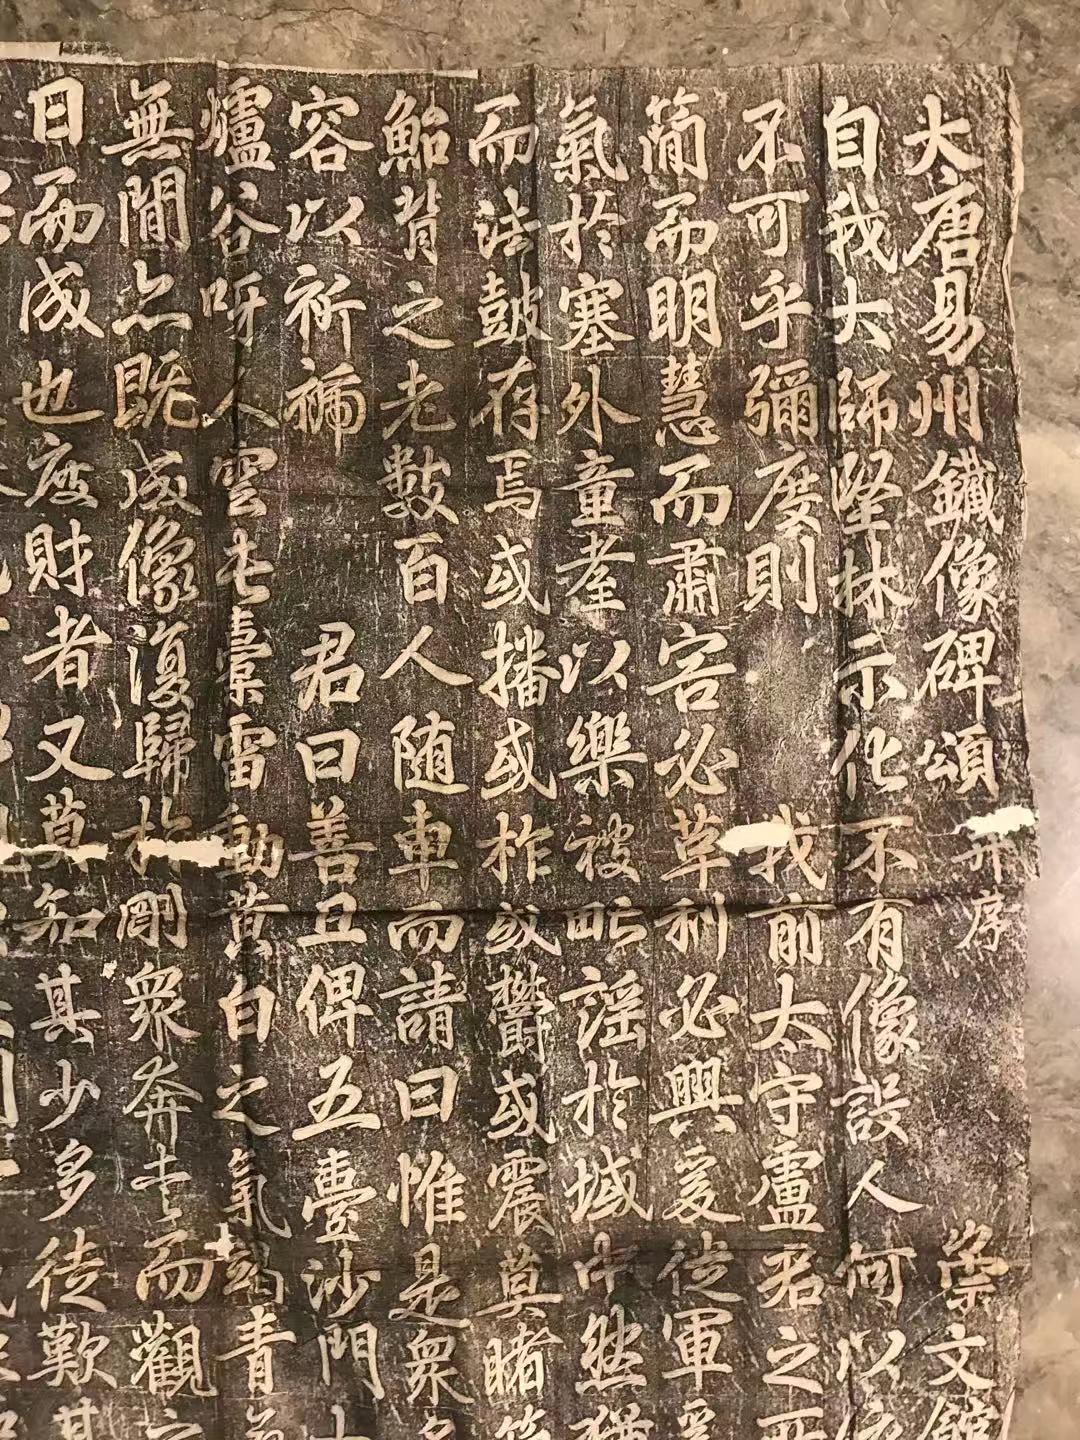 大唐易州鐵像碑頌并序 崇文館
自我大師堅林示化不有像設人何以
不可乎彌度則 我前太守盧君之
簡而明慧而肅害必革利必興爰從軍
氣於塞外童耋以樂被甿謡於域中然
而法鼓存焉或播或柞或欝或震莫睹
鮐背之老數百人随車而請曰惟是衆
容以祈禰 君曰善且俾五臺沙門
爐谷呀人雲屯橐雷動黄白之氣竭青
無間亦既成像復歸於剛衆奔走而觀之
日而成也度財者又莫知其少多徒歎其